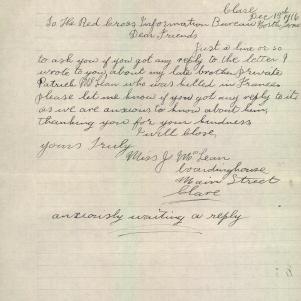 Clare
Dec 19th 1916
To The Red Cross Information Bureau North Terrace
Dear Friends
Just a line or so
to ask you if you got any reply to the letter I
wrote to you, about my late brother, private
Patrick McLean who was killed in France
please let me know if you got any reply to it
as we are anxious to know about him,
thanking you for your kindness
I will close,
yours Truly
Miss J McLean
boardinghouse
Main Street
Clare
anxiously waiting a reply